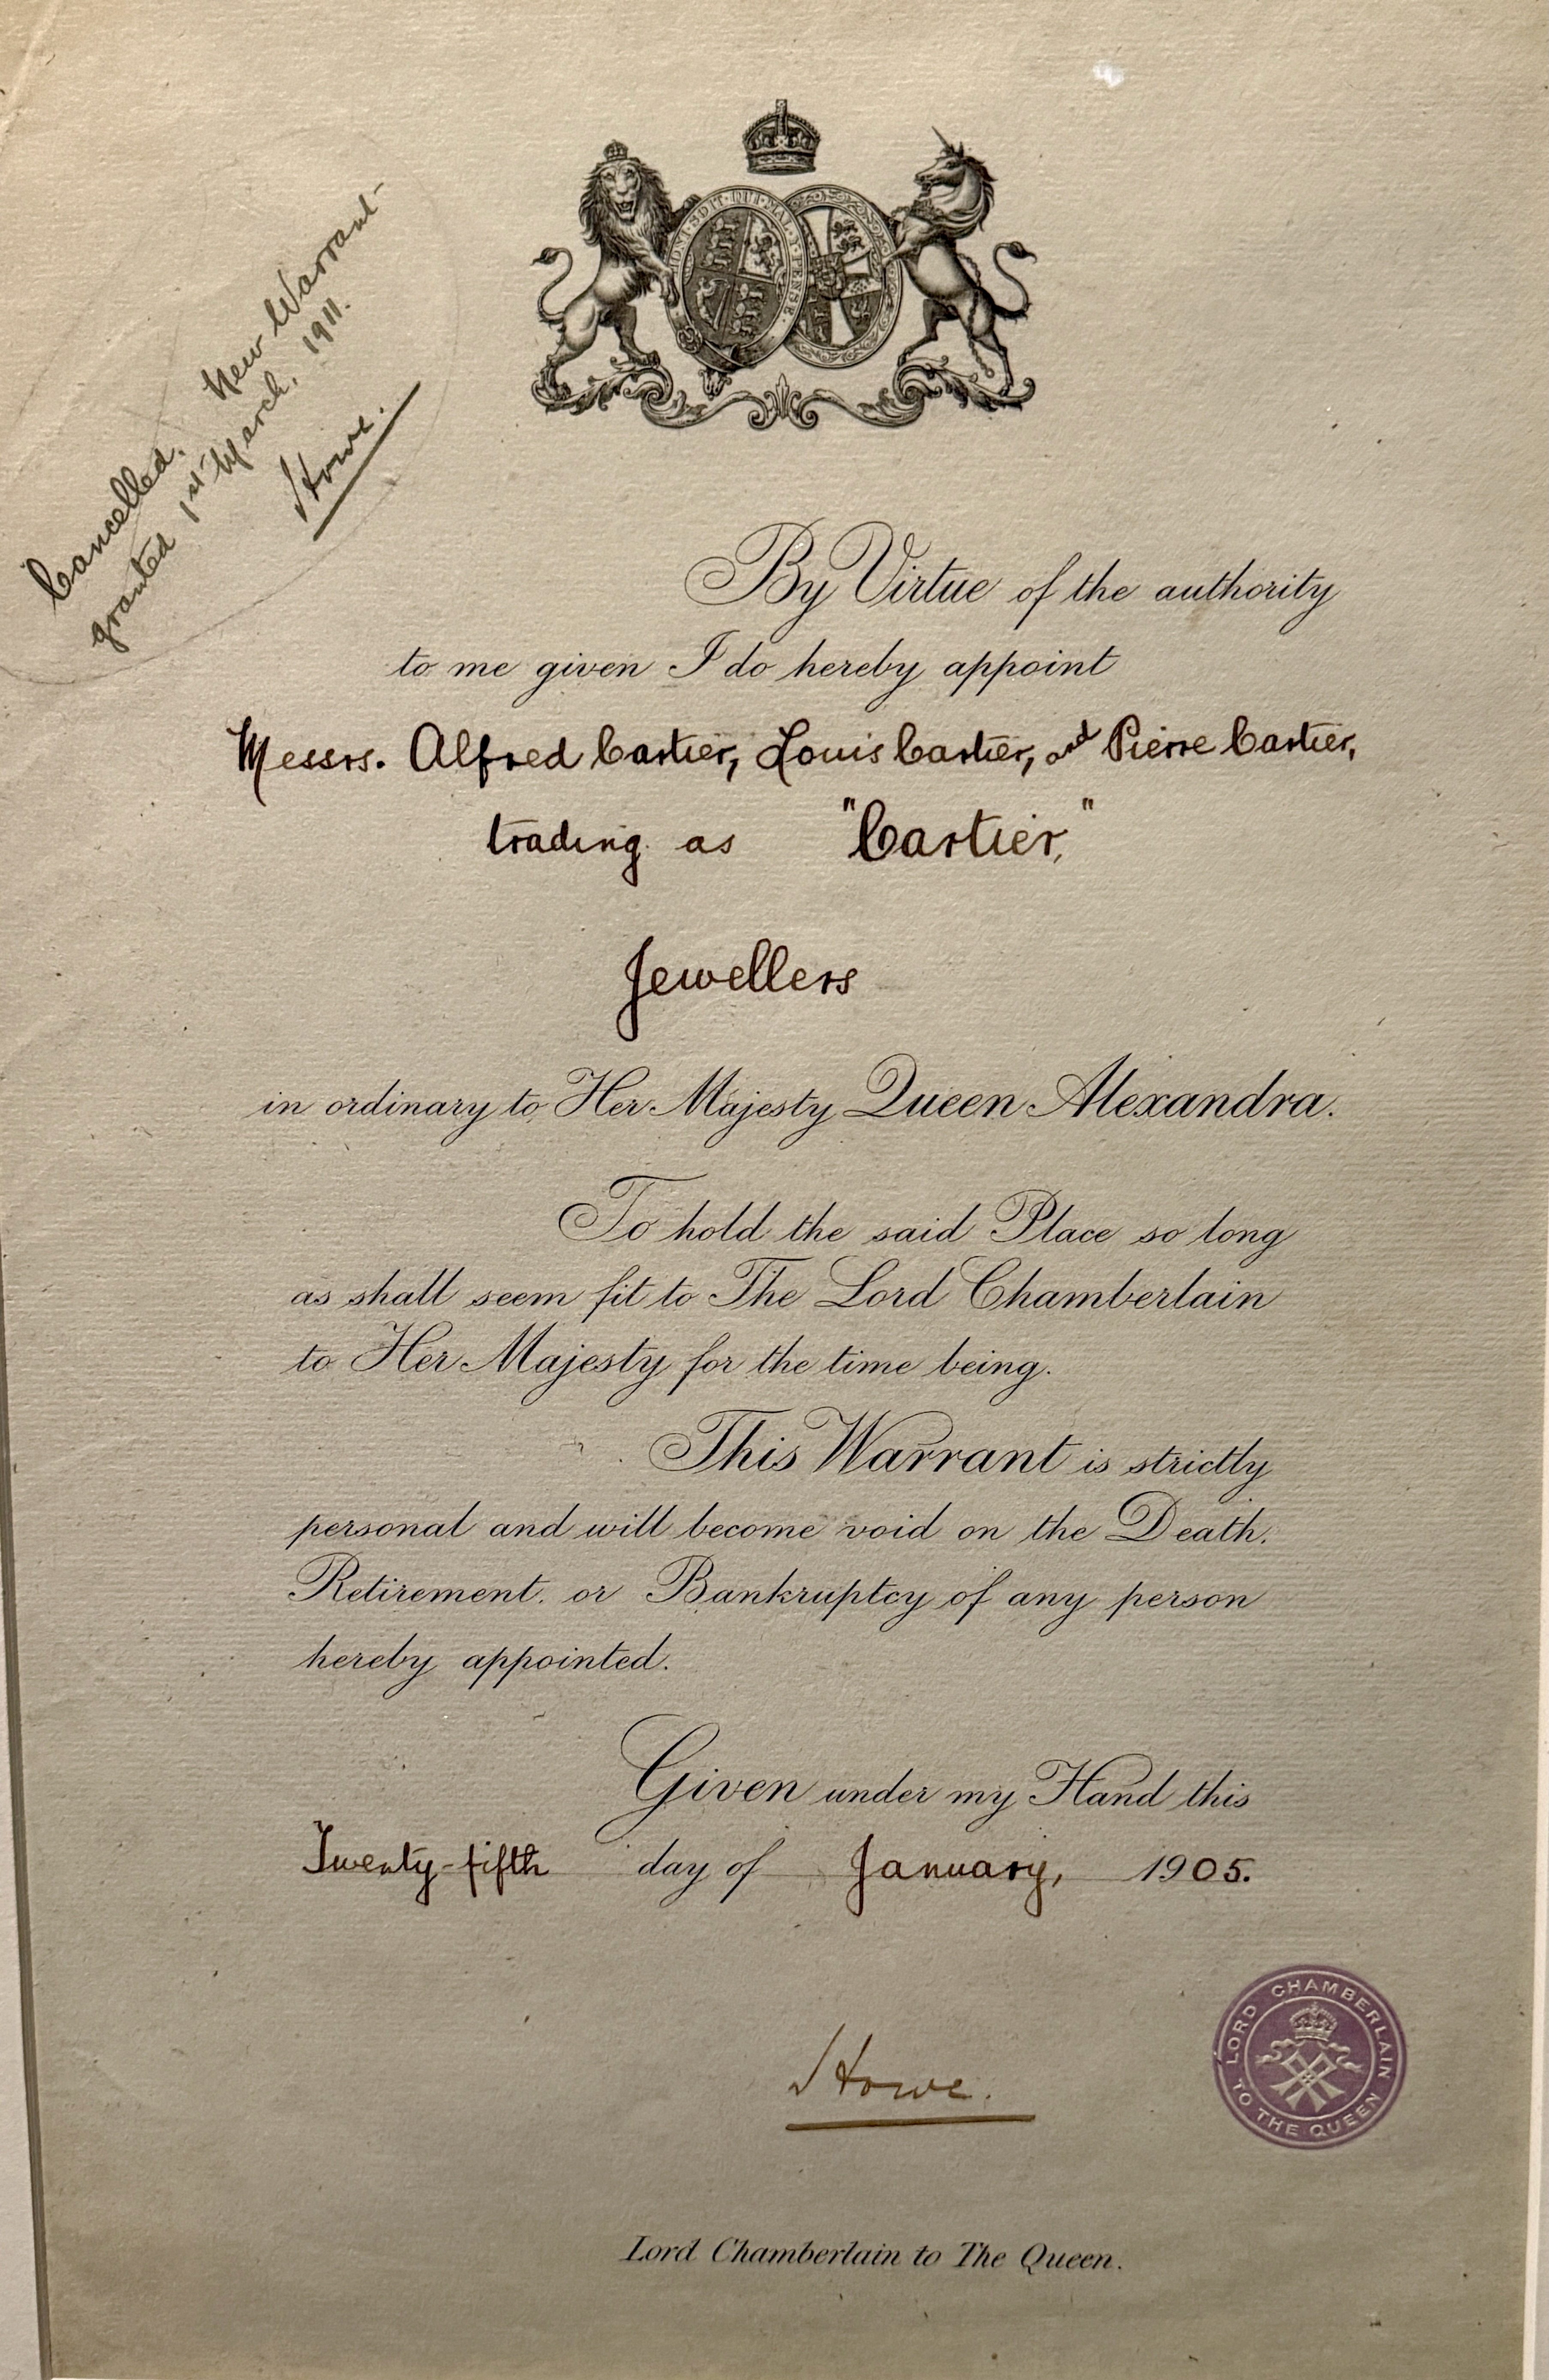 Cancelled. New Warrant
granted 1st March, 1911.
Howe.
HONI·SOIT·QUI·MAL·Y·PENSE
By Virtue of the authority
to me given I do hereby appoint
Messrs. Alfred Cartier, Louis Cartier, and Pierre Cartier,
trading as "Cartier,"
Jewellers
in ordinary to Her Majesty Queen Alexandra.
To hold the said Place so long
as shall seem fit to The Lord Chamberlain
to Her Majesty for the time being.
This Warrant is strictly
personal and will become void on the Death,
Retirement, or Bankruptcy of any person
hereby appointed.
Given under my Hand this
Twenty-fifth day of January, 1905.
Howe.
LORD CHAMBERLAIN TO THE QUEEN
Lord Chamberlain to The Queen.